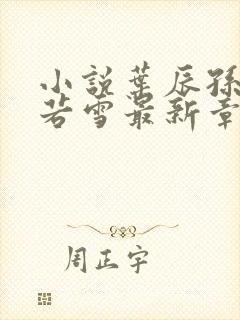 小説葉辰孫
若雪最新章
周正宇